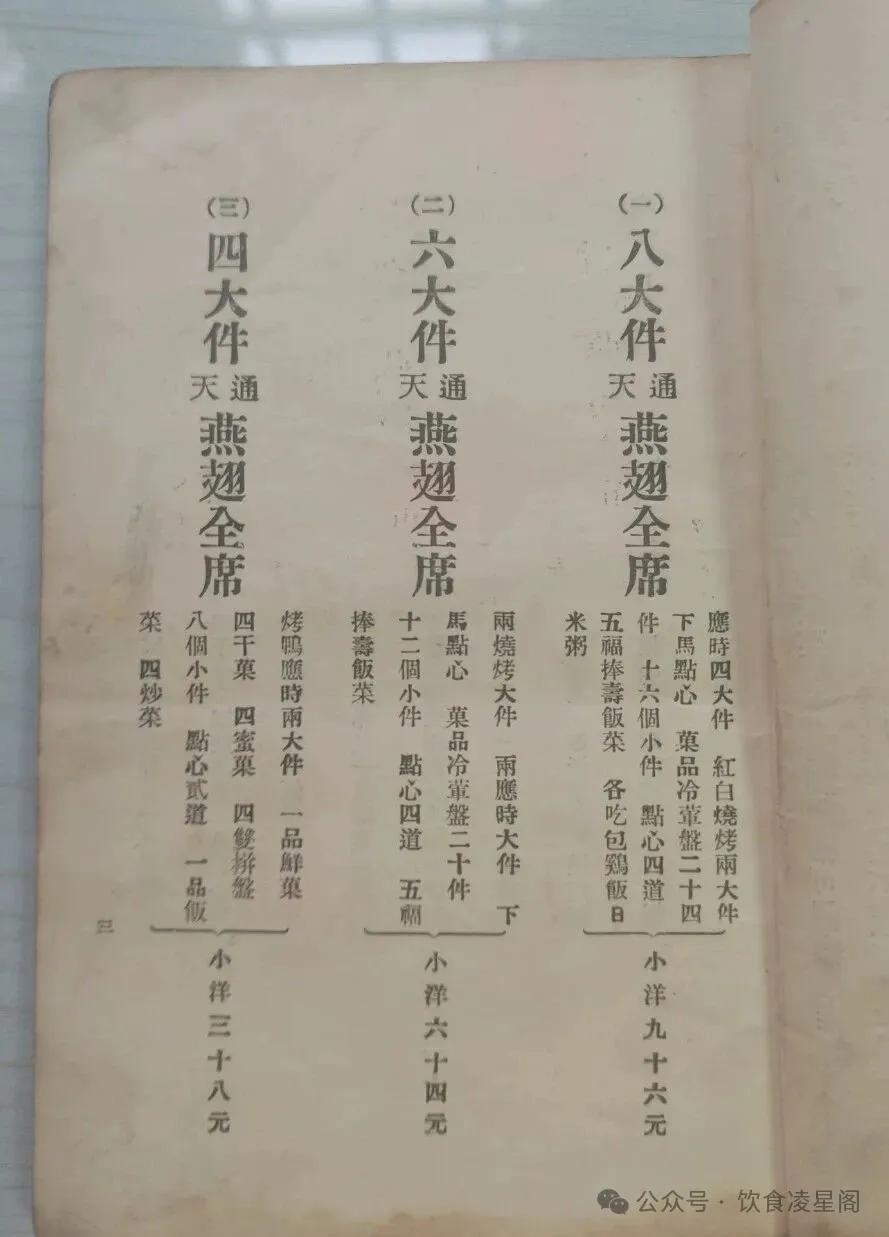 (一)
八大件
通天
燕翅全席
應時四大件 紅白燒烤兩大件
下馬點心 菓品冷葷盤二十四
件 十六個小件 點心四道
五福捧壽飯菜 各吃包鷄飯日
米粥
小洋九十六元
(二)
六大件
通天
燕翅全席
兩燒烤大件 兩應時大件 下
馬點心 菓品冷葷盤二十件
十二個小件 點心四道 五福
捧壽飯菜
小洋六十四元
(三)
四大件
通天
燕翅全席
烤鴨應時兩大件 一品鮮菓
四干菓 四蜜菓 四雙拼盤
八個小件 點心貳道 一品飯
菜 四炒菜
小洋三十八元
三
公众号 · 饮食凌星阁